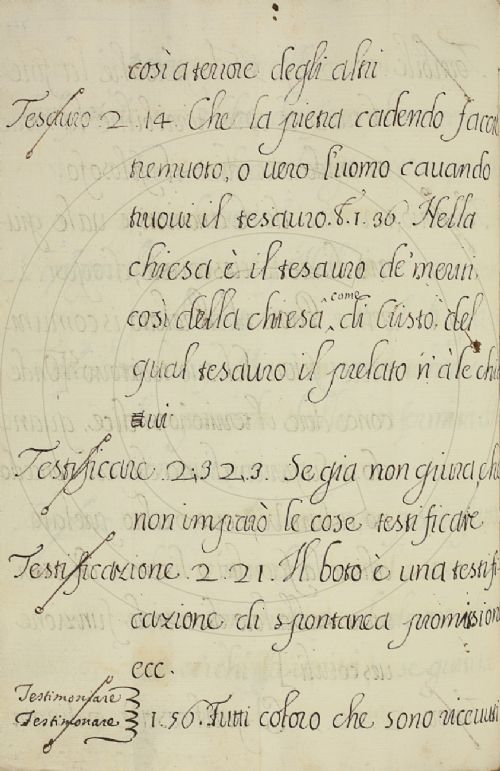 così a tenore degli altri
Tesauro 2.14. Che la pietra cadendo faccia
tremuoto, o vero l'uomo cavando
truovi il tesauro. E.1.36. Nella
chiesa è il tesauro de' meriti
così della chiesa, come di Cristo, del
qual tesauro il prelato n'à le chi-
avi
Testificare 2.32,3. Se già non giura, che
non imparò le cose testificate
Testificazione 2.21. Il boto è una testifi-
cazione di spontanea promissione
ecc.
Testimoniare
Testimonare 1.56. Tutti coloro che sono ricevuti